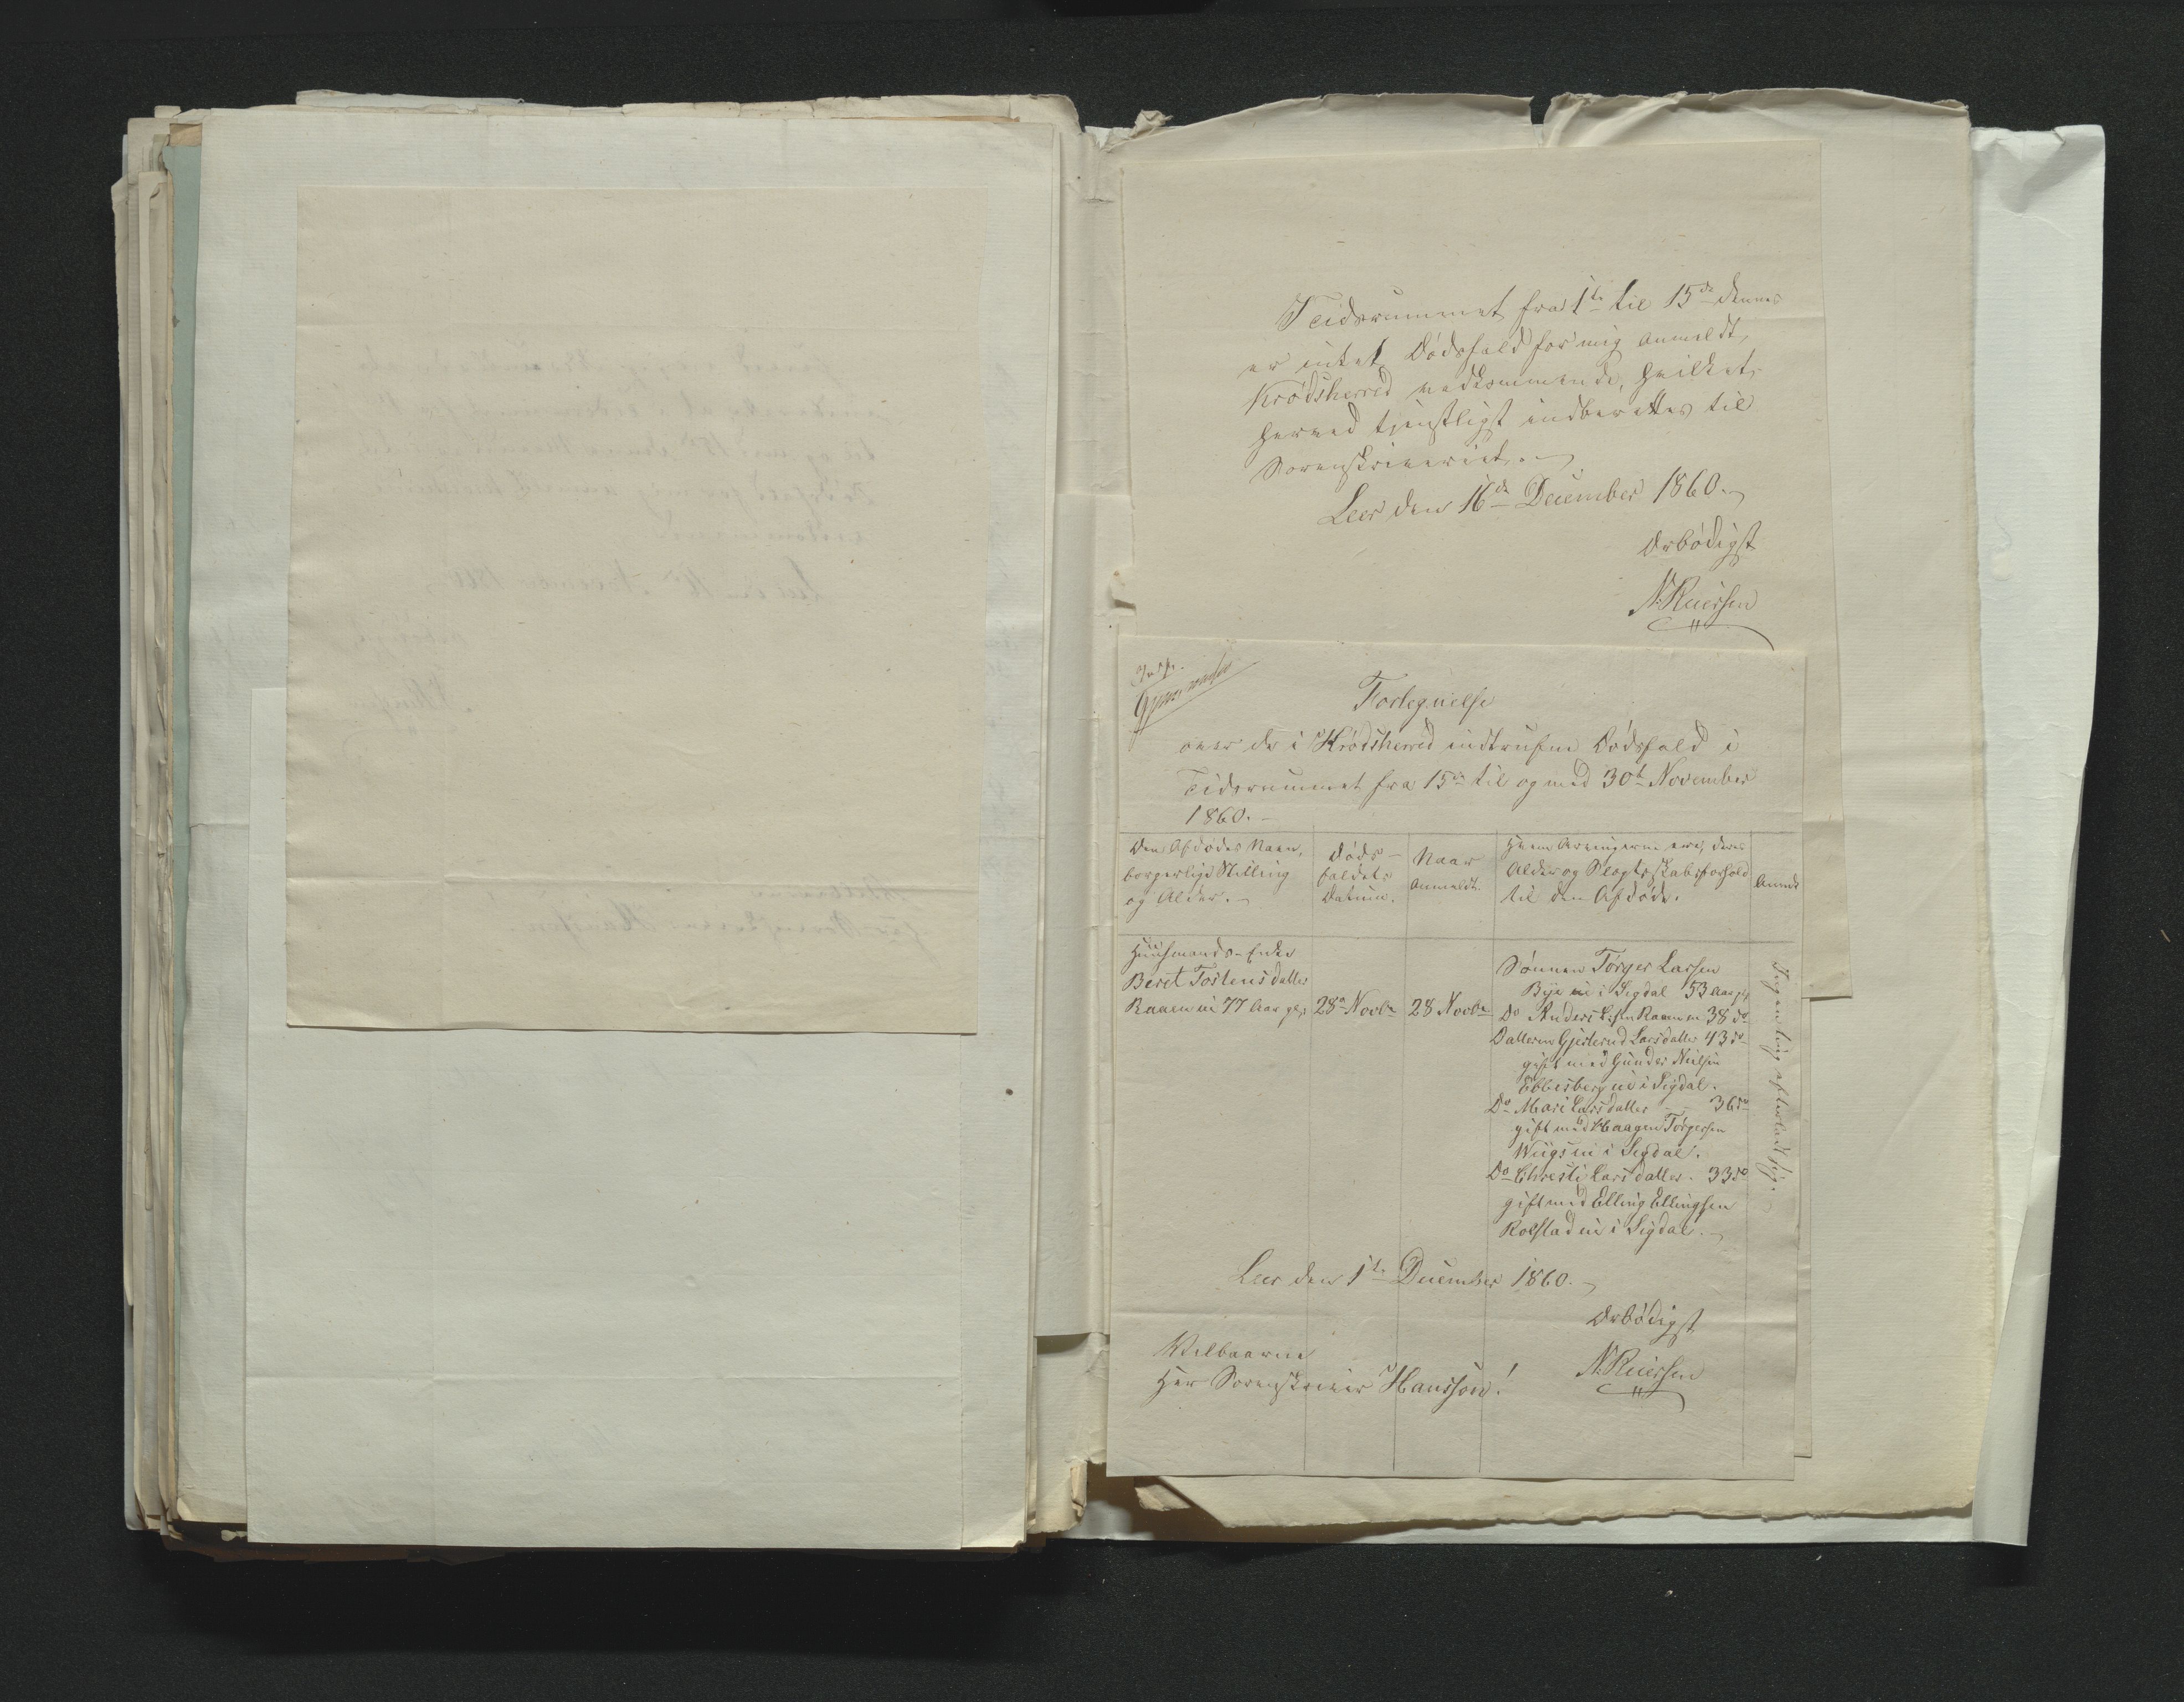 I Tidsrummet fra 1ste til 15de dennes
er intet Dødsfald for mig anmeldt,
Krødsherred vedkommende, hvilket
herved tjenstligst indberettes til
Sorenskriveriet.
Leer den 16de December 1860.
Ærbødigst
N. Ruersen
Fortegnelse
over de i Krødsherred indtrufne Dødsfald i
Tidsrummet fra 15de til og med 30te November
1860.
Den Afdødes Navn,
borgerlige Stilling
og Alder.
Døds-
faldets
Datum.
Naar
anmeldt.
Hvem Arvingerne ere, deres
Alder og Slægtskabsforhold
til den Afdøde.
Anmk
Huusmands-Enke
Beret Tostensdatter
Raaen ei 77 Aar gl.
28de Novbr
28 Novbr
Sønnen Torger Larssen
Bye ei i Sigdal 53 Aar gl.
Do Anders Larssen Raaen ei 38 do
Datteren Gjertrud Larsdatter 43 do
gift med Gunder Nielsen
Ebbesberg ei i Sigdal.
Do Mari Larsdatter 36 do
gift med Haagen Torgersen
Wiigs ei i Sigdal.
Do Christi Larsdatter. 33 do
gift med Elling Ellingsen
Rolstad ei i Sigdal.
Ingenting efterladt sig.
Leer den 1ste December 1860.
Ærbødigst
N. Ruersen
Velbaarne
Herr Sorenskriver Hansson!